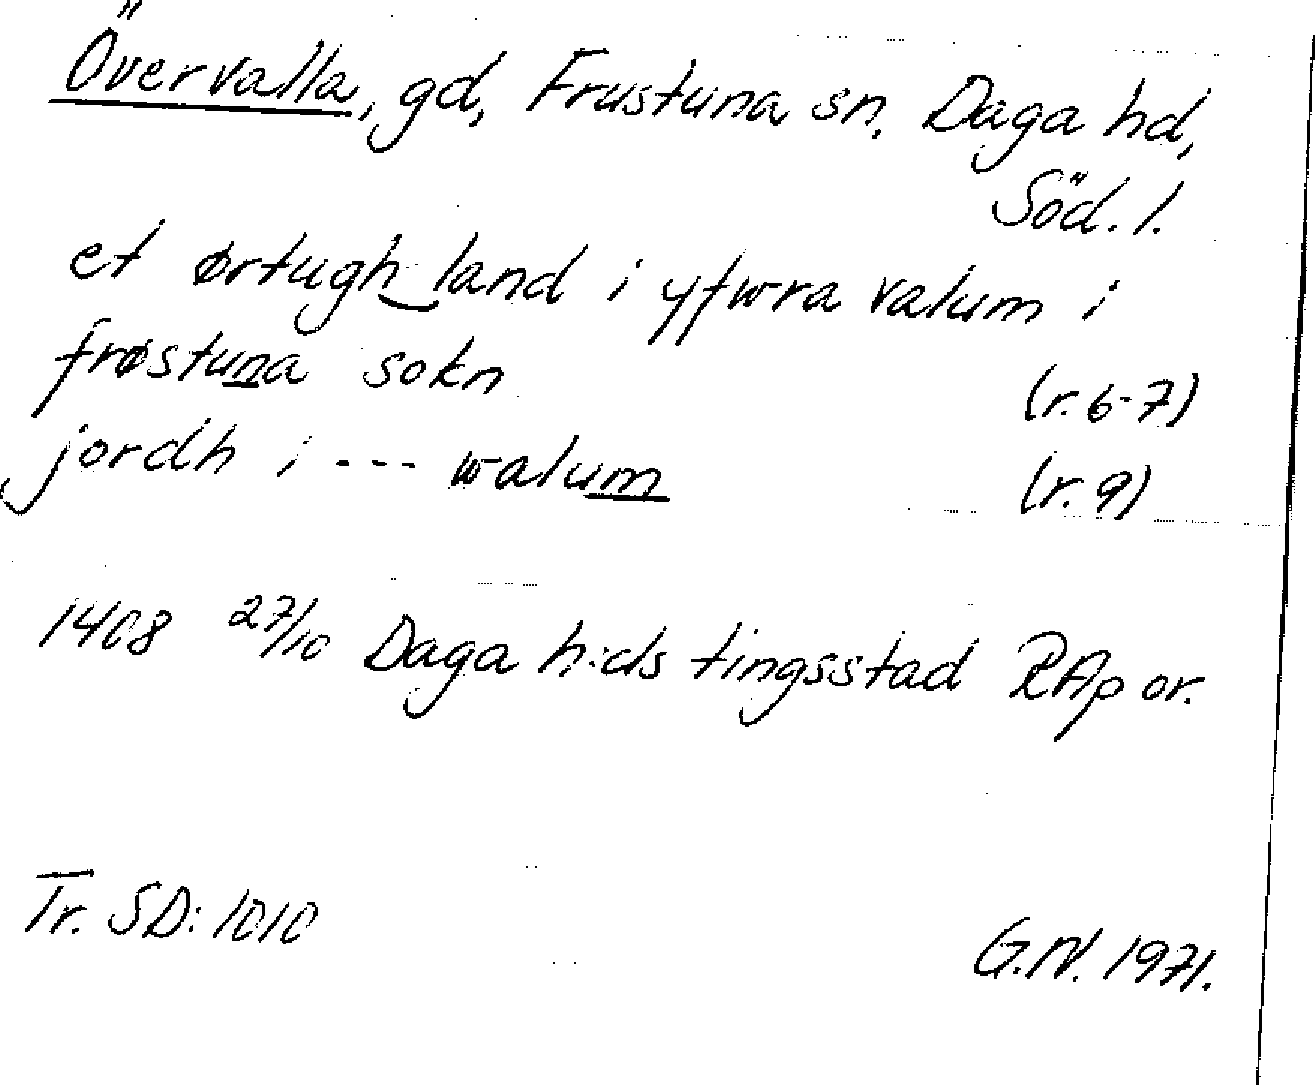 Övervalla, gd, Frustuna sn, Daga hd,
Söd. l.
et ørtugh land i yfwra valum i
frøstuna sokn (r. 6-7)
jordh i --- walum (r. 9)
1408 27/10 Daga h:ds tingsstad RAp or.
Tr. SD: 1010
G.N. 1971.